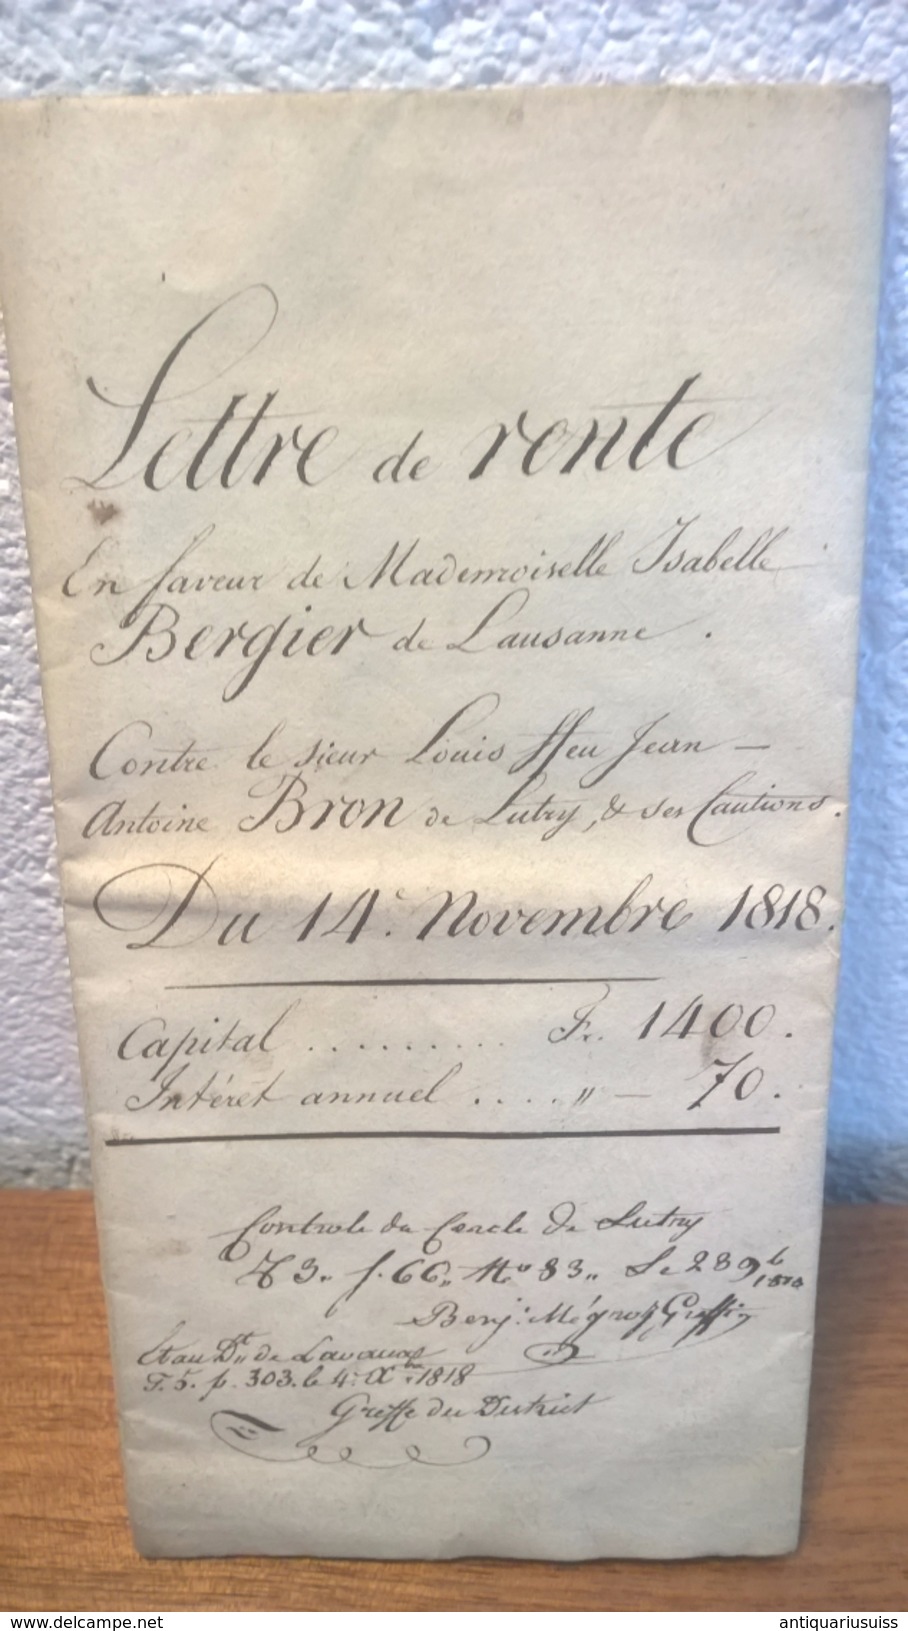 Lettre de rente
En faveur de Mademoiselle Isabelle
Bergier de Lausanne.
Contre le sieur Louis ffeu Jean-
Antoine Bron de Lutry, & ses Cautions.
Du 14e. Novembre 1818.
Capital .......... Fr. 1400.
Intéret annuel ..... „ — 70.
Controle du Cercle de Lutry
f. 66„ No 83„ Le 28 9b
1818
Benj: Greff:
Et au Dt„ de Lavaux
F. 5. p. 303. le 4: Xbre 1818
Greffe du District
delcampe.net
antiquariusuiss